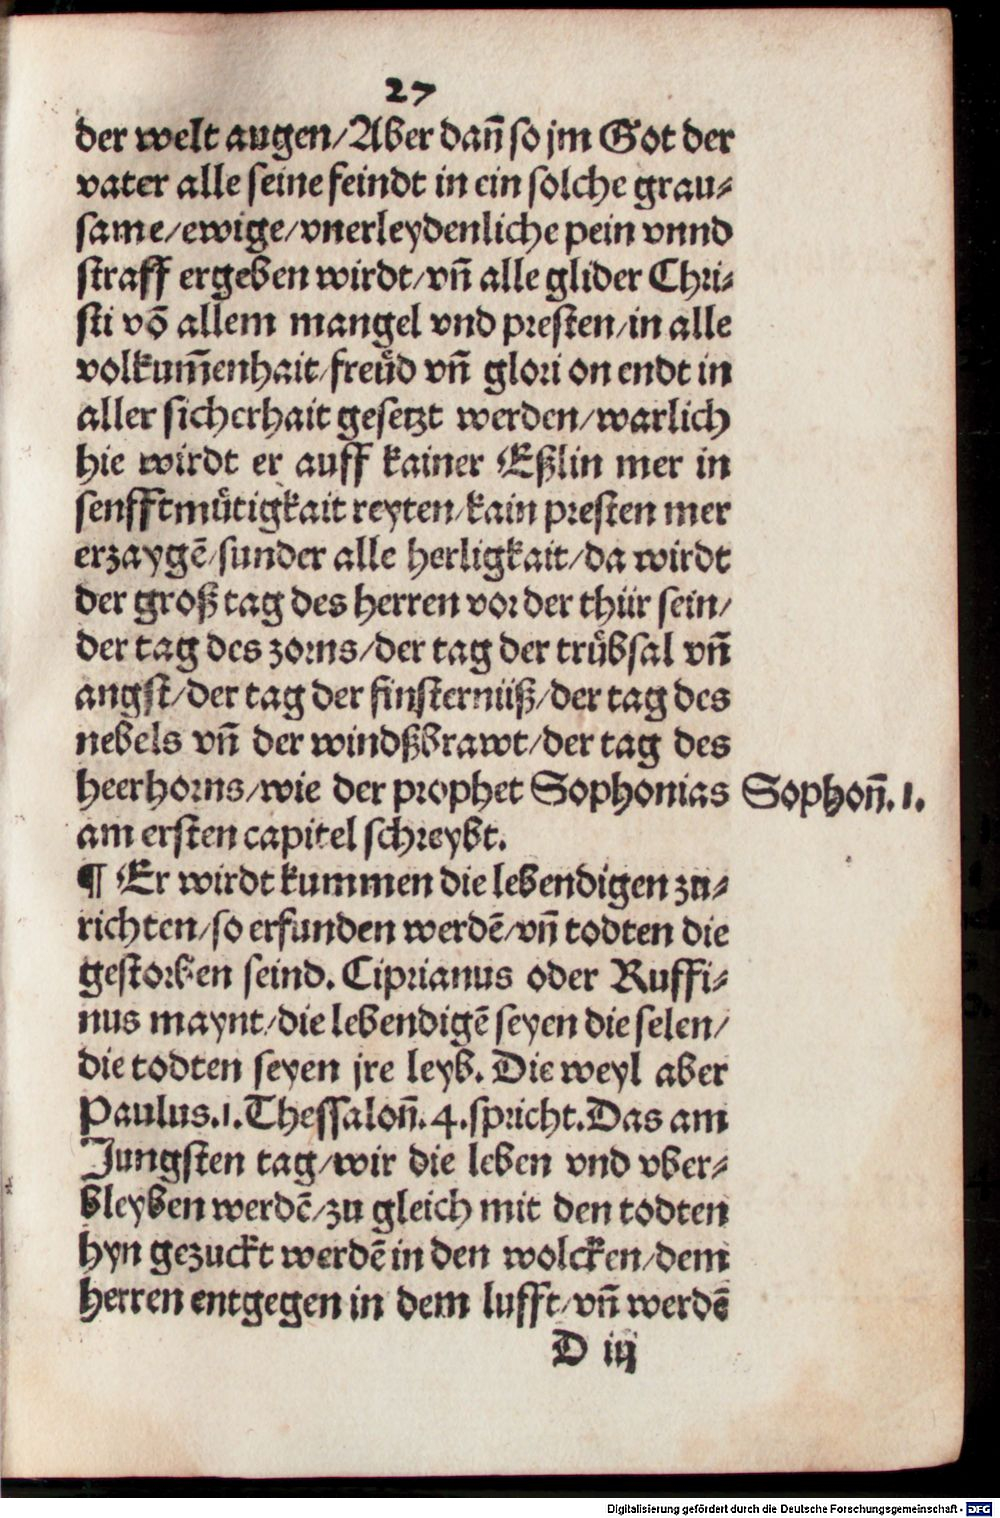 27
der welt augen/Aber dañ so jm Got der
vater alle seine feindt in ein solche grau⸗
same/ewige/vnerleydenliche pein vnnd
straff ergeben wirdt/vñ alle glider Chri⸗
sti võ allem mangel vnd presten/in alle
volkum̃enhait/freüd vñ glori on endt in
aller sicherhait gesetzt werden/warlich
hie wirdt er auff kainer Eßlin mer in
senfftmuͤtigkait reyten/kain presten mer
erzaygẽ/sunder alle herligkait/da wirdt
der groß tag des herren vor der thür sein/
der tag des zorns/der tag der truͤbsal vñ
angst/der tag der finsternüß/der tag des
nebels vñ der windßbrawt/der tag des
heerhorns/wie der prophet Sophonias Sophoñ. 1.
am ersten capitel schreybt.
¶ Er wirdt kummen die lebendigen zu⸗
richten/so erfunden werdẽ/vñ todten die
gestorben seind. Ciprianus oder Ruffi⸗
nus maynt/die lebendigẽ seyen die selen/
die todten seyen jre leyb. Die weyl aber
Paulus.1.Thessaloñ.4.spricht.Das am
Jungsten tag/wir die leben vnd vber⸗
bleyben werdẽ/zu gleich mit den todten
hyn gezuckt werdẽ in den wolcken/dem
herren entgegen in dem lufft/vñ werdẽ
D iij
Digitalisierung gefördert durch die Deutsche Forschungsgemeinschaft - DFG